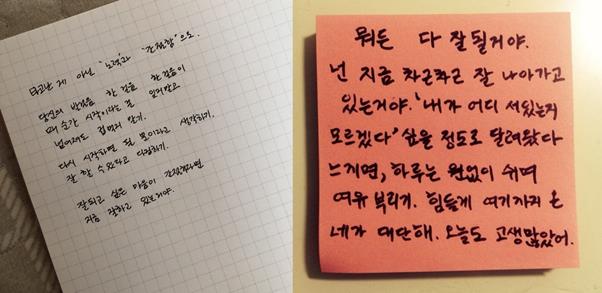 타고난 게 아닌 "노력"과 "간절함"으로.
당신의 발걸음 한 걸음 한 걸음이
매 순간 시작이라는 걸 잊지말고.
넘어져도 겁먹지 않기.
다시 시작하면 될 뿐이라고 생각하기.
잘 할 수 있다고 다짐하기.
잘되고 싶은 마음이 간절하다면
지금 잘하고 있는거야.
뭐든 다 잘될거야.
넌 지금 차근차근 잘 나아가고
있는거야. '내가 어디 서있는지
모르겠다' 싶을 정도로 달려왔다
느끼면, 하루는 원없이 쉬며
여유 부리기. 힘들게 여기까지 온
네가 대단해. 오늘도 고생많았어.